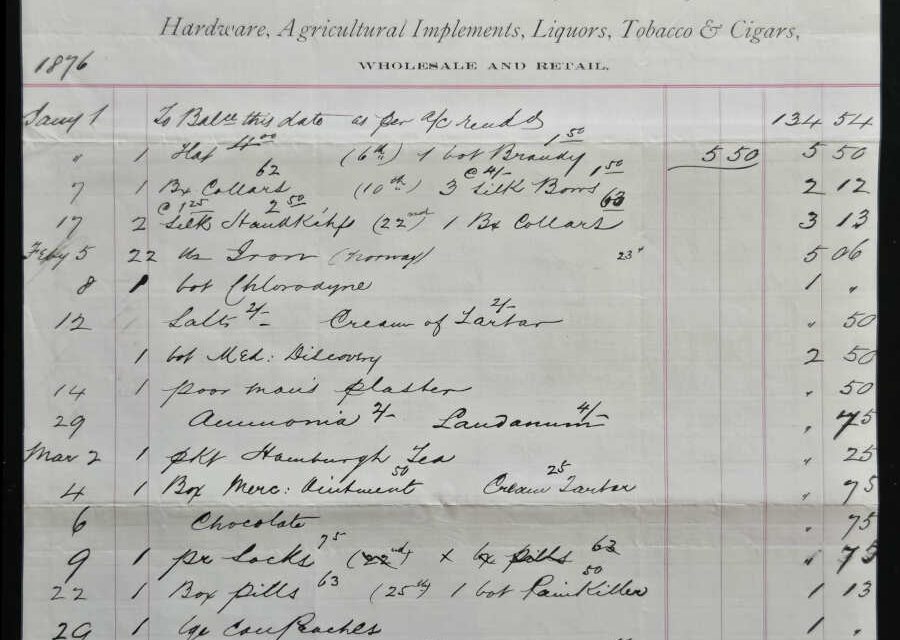 Hardware, Agricultural Implements, Liquors, Tobacco & Cigars,
1876 WHOLESALE AND RETAIL.
Jany 1 To Balce this date as per a/c rend'd 134 54
" 1 Hat 4 00 (6th) 1 bot Brandy 1 50 5 50 5 50
7 1 Bx Collars 62 (10th) 3 Silk Bows @ 4/- 1 50 2 12
17 2 Silk Handk'fs @ 1 25 2 50 (22nd) 1 Bx Collars 63 3 13
Feby 5 22 lbs Iron (Norway) 23" 5 06
8 1 bot Chlorodyne 1 "
12 Salts 2/- Cream of Tartar 2/- " 50
1 bot Med: Discovery 2 50
14 1 poor man's plaster " 50
29 Ammonia 2/- Laudanum 4/- " 75
Mar 2 1 pkt Hamburgh Tea " 25
4 1 Box Merc: Ointment 50 Cream Tartar 25 " 75
6 Chocolate " 75
9 1 pr Socks 75 (22nd) x bx pills 63 " 75
22 1 Box pills 63 (25th) 1 bot PainKiller 50 1 13
29 1 lge can Peaches 1 "